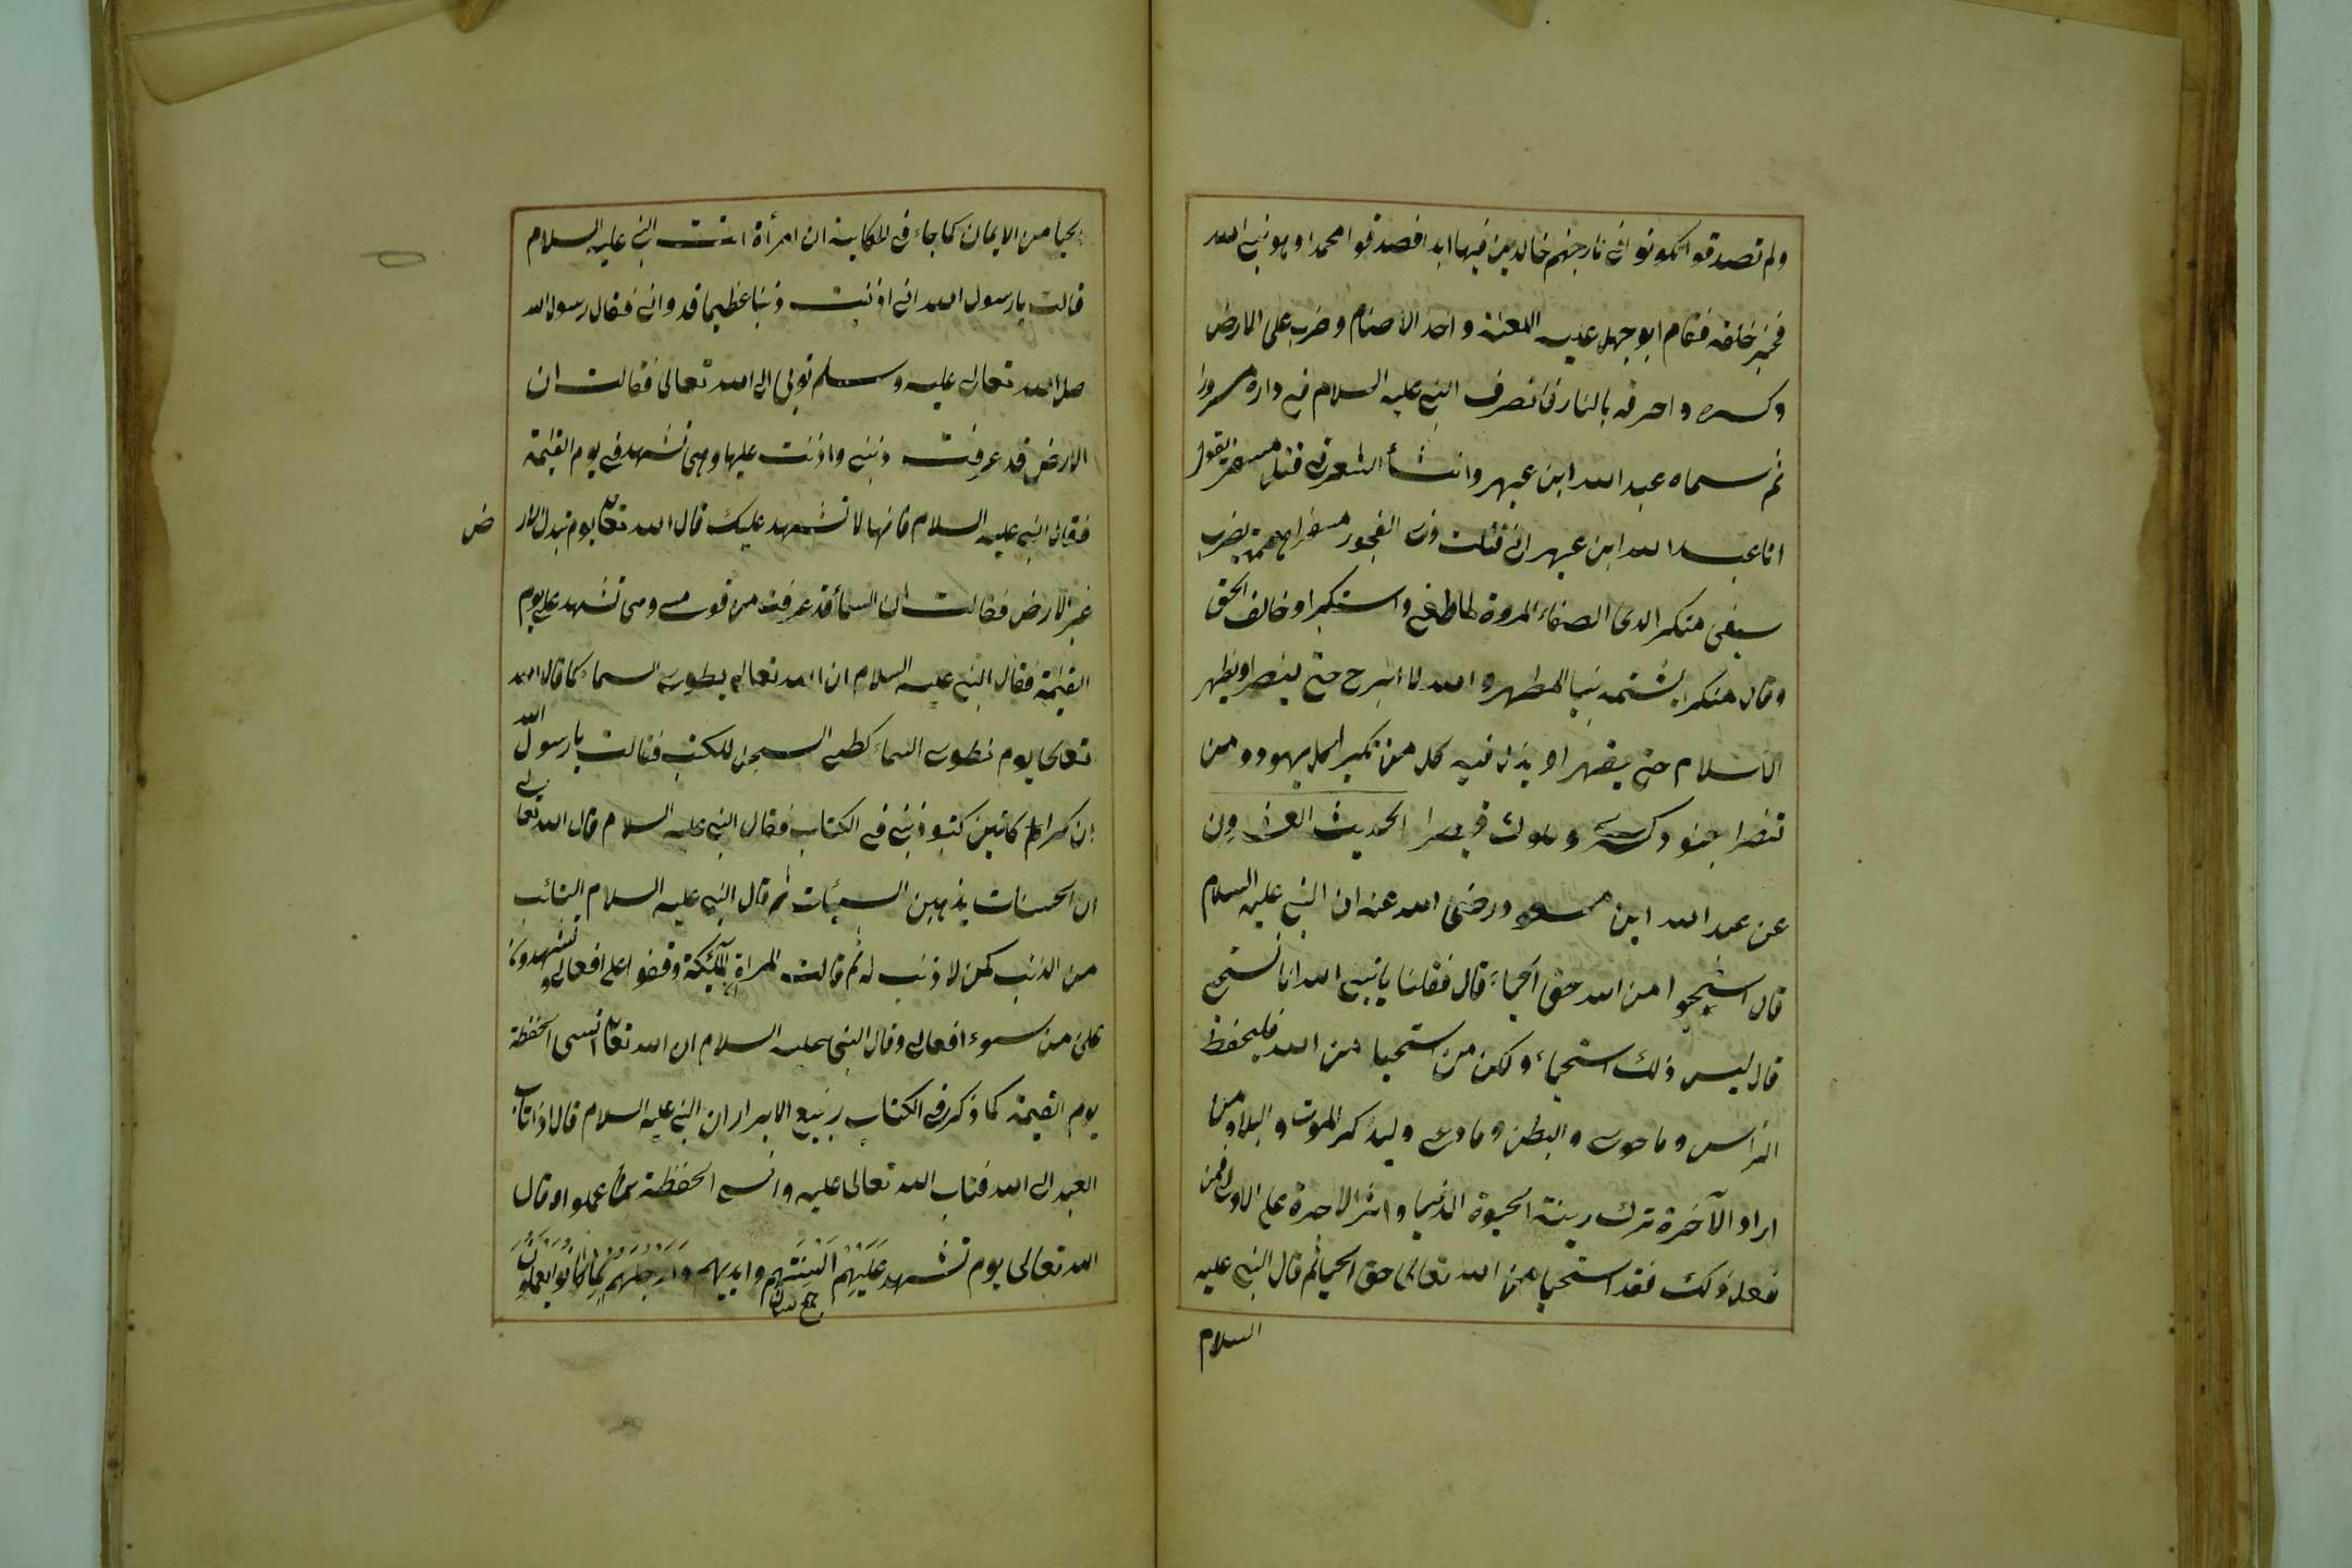 ولم تصدقوا تكونوا فى نار جهنم خالدين فيها ابدا فصدقوا محمدا وهو نبى الله
خلقه فقام ابو جهل عليه اللعنة واخذ الاصنام وضرب على الارض
وكسره واحرقه بالنار فانصرف النبى عليه السلام فى داره مسرورا
ثم سماه عبد الله ابن عبهر وانشأ الشعر فى قتل مسفر يقول
انا عبد الله ابن عبهر انى قتلت ذى الفجور مسفرا بضرب
سيفى منكر الدى الصفاء المروة لما طغى واستكبرا وخالف الحق
وقال منكرا بشتمه نبيا المطهر والله لا ابرح حتى ينصر او يظهر
الاسلام حتى يقهر او يذل فيه كل من تكبر اهل يهود ومن
تنصرا جنود كسرى وملوك قيصرا الحديث العشرون
عن عبد الله ابن مسعود رضى الله عنه ان النبى عليه السلام
قال استحيوا من الله حق الحياء قال فقلنا يا نبى الله انا نستحى
قال ليس ذلك استحياء ولكن من استحيا من الله فليحفظ
الرأس وما حوى والبطن وما وعى وليذكر الموت والبلا ومن
اراد الآخرة ترك زينة الحيوة الدنيا واثر الاخرة على الاولى فمن
فعل ذلك فقد استحيا من الله تعالى حق الحيا ثم قال النبى عليه
السلام
الحيا من الايمان كما جاء فى الحكاية ان امرأة اتت النبى عليه السلام
قالت يا رسول الله انى اذنبت ذنبا عظيما فدوانى فقال رسول الله
صلى الله تعالى عليه وسلم توبى الى الله تعالى فقالت ان
الارض قد عرفت ذنبى واذنبت عليها وهى تشهد فى يوم القيمة
فقال النبى عليه السلام فانها لا تشهد عليك قال الله تعالى يوم تبدل الار
ض
غير الارض فقالت ان السماء قد عرفت من فوقى وهى تشهد على يوم
القيمة فقال النبى عليه السلام ان الله تعالى يطوى السماء كما قال الله
تعالى يوم نطوى السماء كطى السجل للكتب فقالت يا رسول الله
ان كراما كاتبين كتبو ذنبى فى الكتاب فقال النبى عليه السلام قال الله تعالى
ان الحسنات يذهبن السيئات ثم قال النبى عليه السلام التائب
من الذنب كمن لا ذنب له ثم قالت المرأة الملئكة وقفوا على افعالى ويشهدون
على من سوء افعالى وقال النبى عليه السلام ان الله تعالى انسى الحفظة
يوم القيمة كما ذكر فى الكتاب ربيع الابرار ان النبى عليه السلام قال اذا تاب
العبد الى الله فتاب الله تعالى عليه وانسى الحفظة ما عملوا وقال
الله تعالى يوم تشهد عَلَيْهِم اَلْسِنَتُهم وايديهم وارجلهم بما كانوا يعملون
جمع لسان